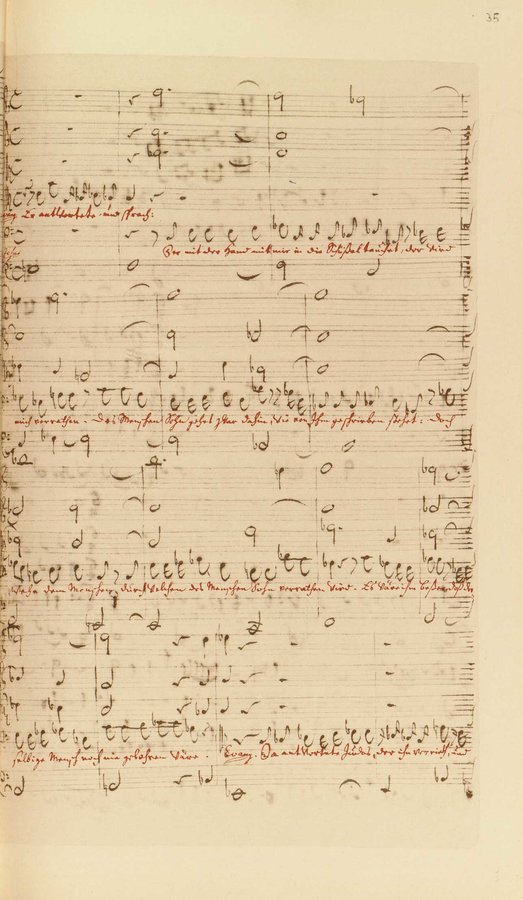 35
Evang. Er antwortete und sprach:
Der mit der Hand mit mir in die Schüßel tauchet, der wird
mich verrathen. Des Menschen Sohn gehet zwar dahin, wie von Ihm geschrieben stehet: doch
wehe dem Menschen, durch welchen des Menschen Sohn verrathen wird. Es wäre ihm beßer, daß der
selbige Mensch noch nie gebohren wäre. Evang. Da antwortete Judas, der ihn verrieth, und